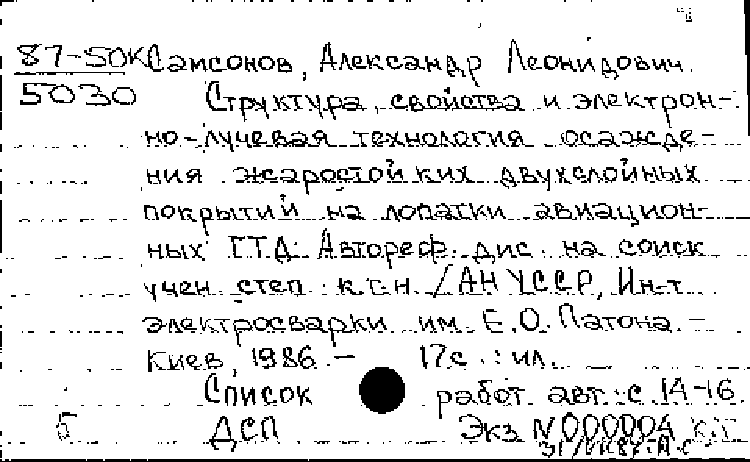 87-50К Самсонов, Александр Леонидович.
5030 Структура, свойства и электрон-
но-лучевая технология осажде-
ния жаростойких двухслойных
покрытий на лопатки авиацион-
ных ГТД: Автореф. дис. на соиск
учен. степ. к.т.н. / АН УССР, Ин-т
электросварки им. Е.О. Патона. –
Киев, 1986. – 17с.: ил.
Список работ авт.: с. 14-16.
Б ДСП Экз. N 000004